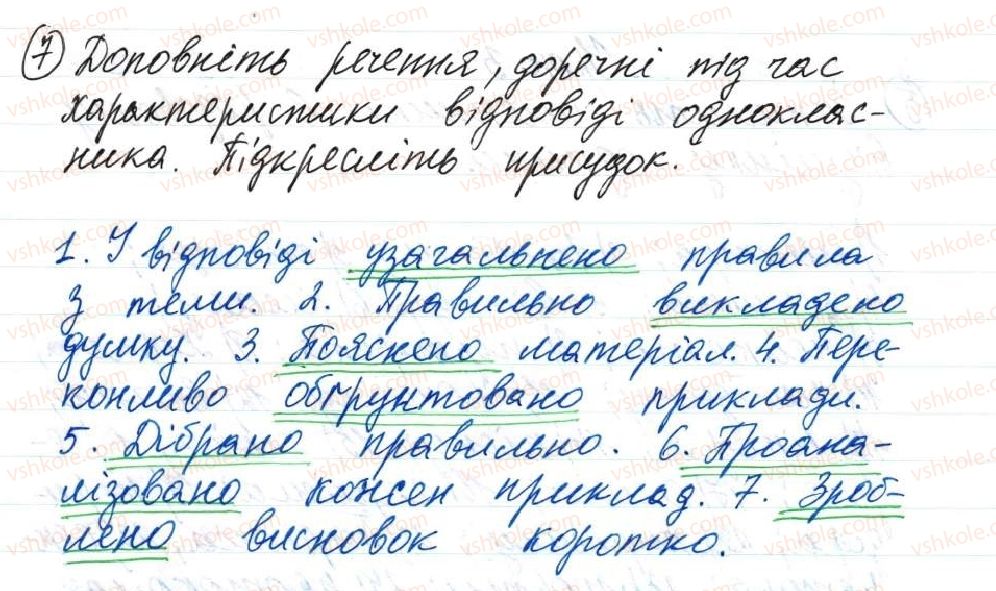 7 Доповніть речення, доречні під час
характеристики відповіді одноклас-
ника. Підкресліть присудок.
1. У відповіді узагальнено правила
з теми. 2. Правильно викладено
думку. 3. Пояснено матеріал. 4. Пере-
конливо обґрунтовано приклади.
5. Дібрано правильно. 6. Проана-
лізовано кожен приклад. 7. Зроб-
лено висновок коротко.